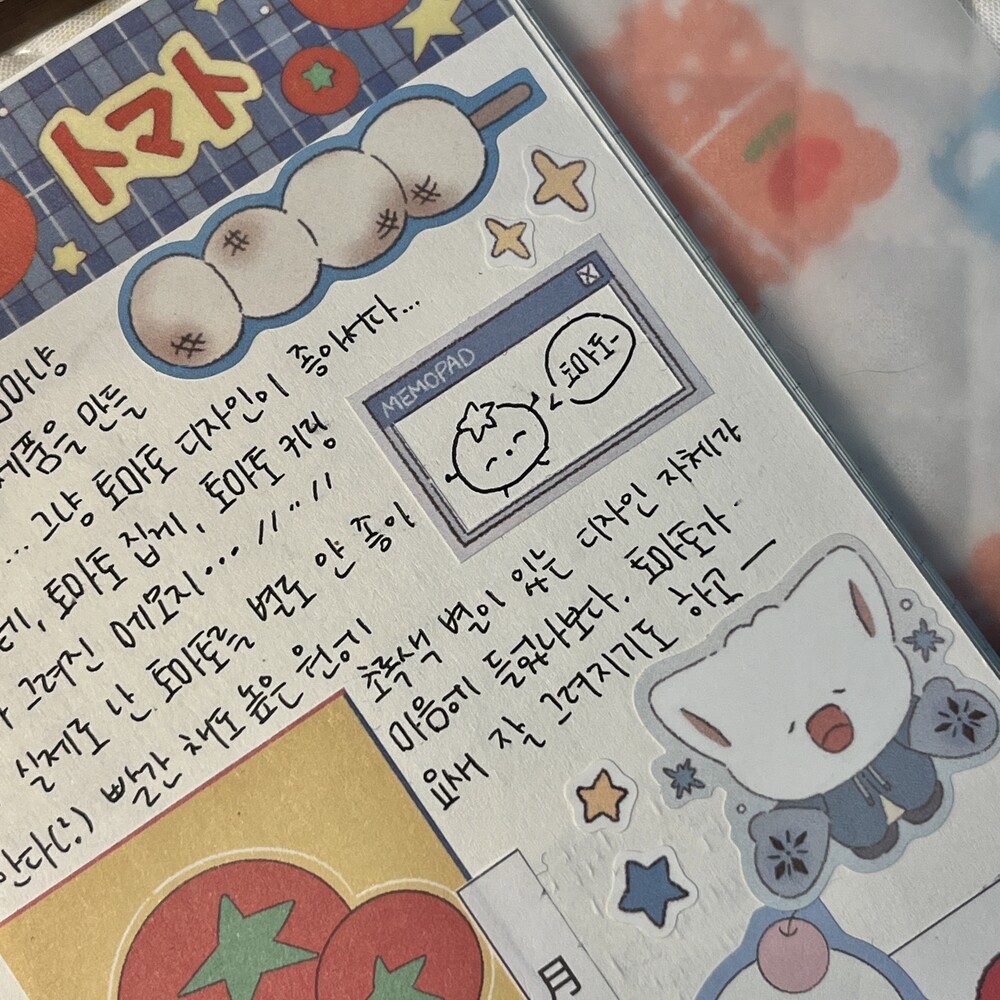 トマト
MEMOPAD
토마토~
제품을 만들
... 그냥 토마토 디자인이 좋아서다...
토마토 집게, 토마토 키링
그려진 메모지... // " //
실제로 난 토마토를 별로 안 좋아
한다(?) 빨간 채도 높은 원기
초록색 별이 있는 디자인 자체가
마음에 들었나보다. 토마토가
요새 잘 그려지기도 하고 —
月